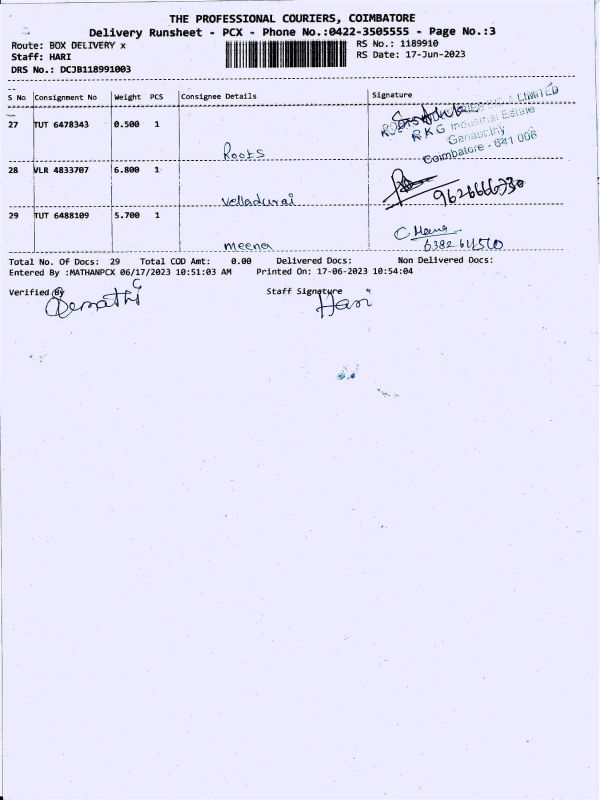 THE PROFESSIONAL COURIERS, COIMBATORE
Delivery Runsheet - PCX - Phone No.:0422-3505555 - Page No.:3
Route: BOX DELIVERY x
RS No.: 1189910
Staff: HARI
RS Date: 17-Jun-2023
DRS No.: DCJB118991003
S No Consignment No Weight PCS Consignee Details Signature
27 TUT 6478343 0.500 1
LIMITED
RKG Industrial Estate
Ganapathy
Coimbatore - 641 006
Roots
28 VLR 4833707 6.800 1
Velladurai
9626666330
29 TUT 6488109 5.700 1
C Meena
meena
6382611510
Total No. Of Docs: 29 Total COD Amt: 0.00 Delivered Docs: Non Delivered Docs:
Entered By :MATHANPCX 06/17/2023 10:51:03 AM Printed On: 17-06-2023 10:54:04
Verified By
Staff Signature
Hari